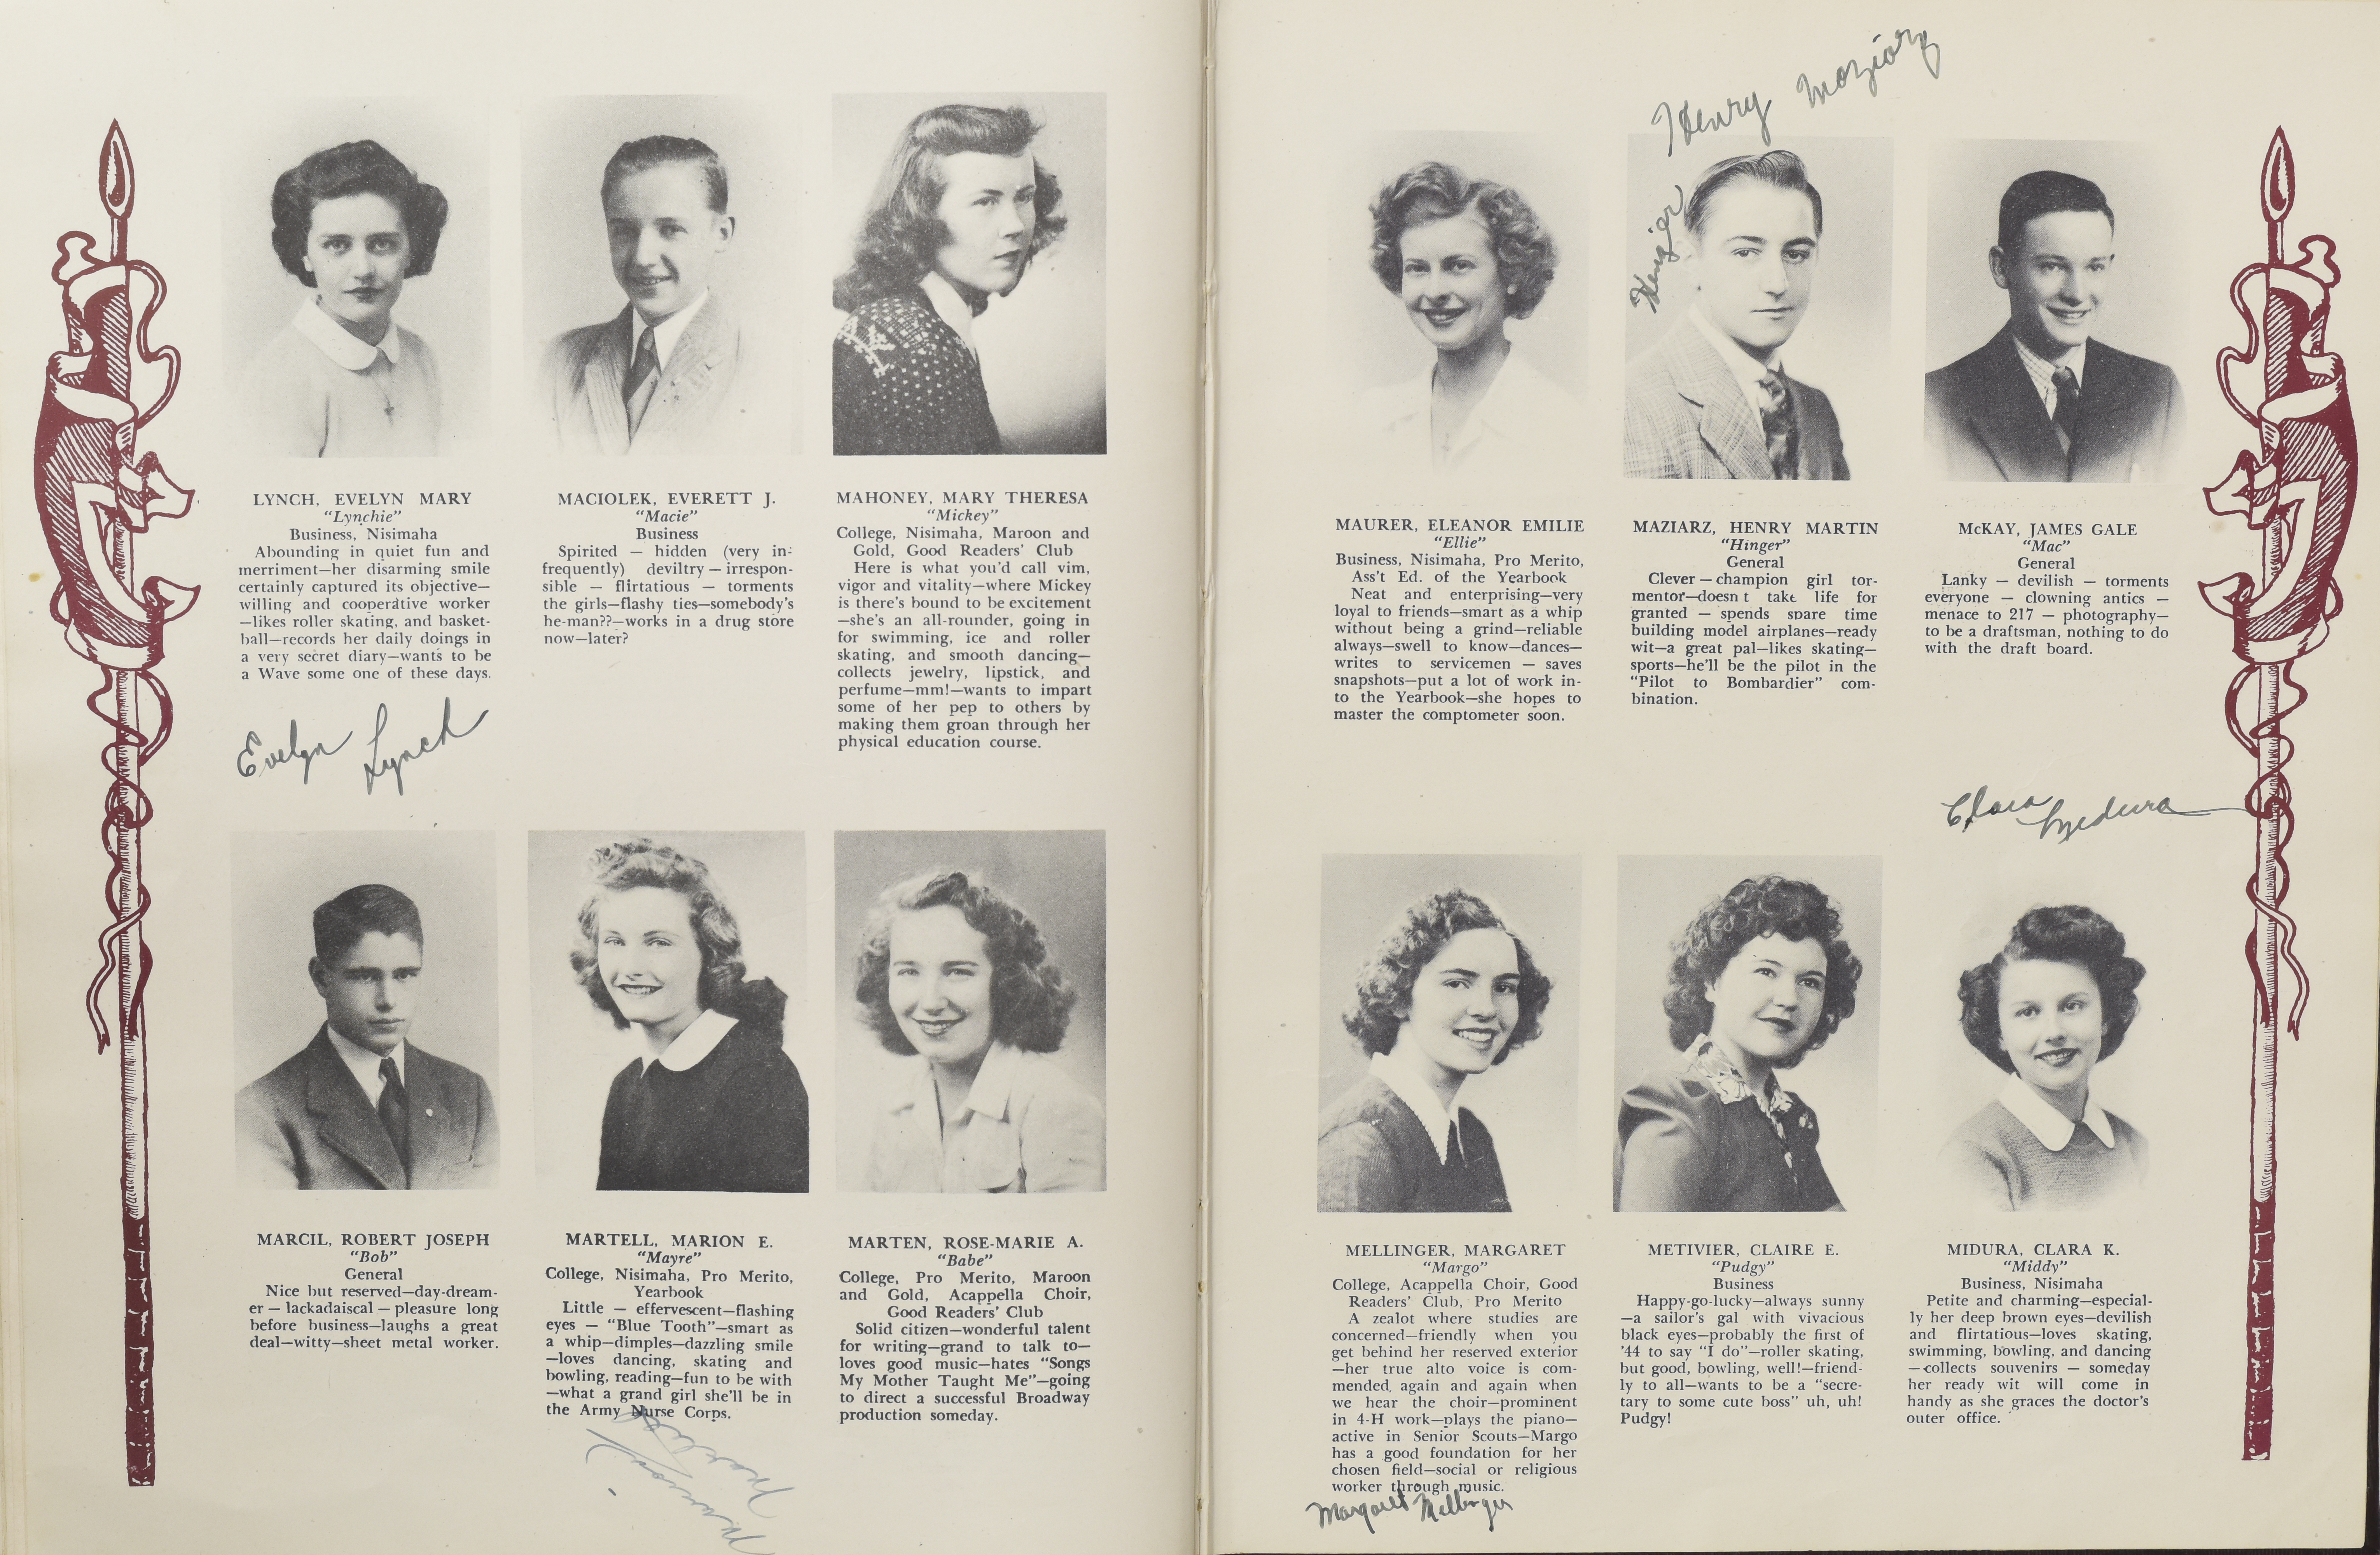 LYNCH, EVELYN MARY
“Lynchie”
Business, Nisimaha
Abounding in quiet fun and
merriment—her disarming smile
certainly captured its objective—
willing and cooperative worker
—likes roller skating, and basket-
ball—records her daily doings in
a very secret diary—wants to be
a Wave some one of these days.
Evelyn Lynch
MACIOLEK, EVERETT J.
“Macie”
Business
Spirited — hidden (very in-
frequently) deviltry — irrespon-
sible — flirtatious — torments
the girls—flashy ties—somebody's
he-man??—works in a drug store
now—later?
MAHONEY, MARY THERESA
“Mickey”
College, Nisimaha, Maroon and
Gold, Good Readers' Club
Here is what you'd call vim,
vigor and vitality—where Mickey
is there's bound to be excitement
—she's an all-rounder, going in
for swimming, ice and roller
skating, and smooth dancing—
collects jewelry, lipstick, and
perfume—mm!—wants to impart
some of her pep to others by
making them groan through her
physical education course.
MARCIL, ROBERT JOSEPH
“Bob”
General
Nice but reserved—day-dream-
er — lackadaiscal — pleasure long
before business—laughs a great
deal—witty—sheet metal worker.
MARTELL, MARION E.
“Mayre”
College, Nisimaha, Pro Merito,
Yearbook
Little — effervescent—flashing
eyes — “Blue Tooth”—smart as
a whip—dimples—dazzling smile
—loves dancing, skating and
bowling, reading—fun to be with
—what a grand girl she'll be in
the Army Nurse Corps.
Marion
MARTEN, ROSE-MARIE A.
“Babe”
College, Pro Merito, Maroon
and Gold, Acappella Choir,
Good Readers' Club
Solid citizen—wonderful talent
for writing—grand to talk to—
loves good music—hates “Songs
My Mother Taught Me”—going
to direct a successful Broadway
production someday.
Henry Maziarz
MAURER, ELEANOR EMILIE
“Ellie”
Business, Nisimaha, Pro Merito,
Ass't Ed. of the Yearbook
Neat and enterprising—very
loyal to friends—smart as a whip
without being a grind—reliable
always—swell to know—dances—
writes to servicemen — saves
snapshots—put a lot of work in-
to the Yearbook—she hopes to
master the comptometer soon.
MAZIARZ, HENRY MARTIN
“Hinger”
General
Clever — champion girl tor-
mentor—doesn t take life for
granted — spends spare time
building model airplanes—ready
wit—a great pal—likes skating—
sports—he'll be the pilot in the
“Pilot to Bombardier” com-
bination.
McKAY, JAMES GALE
“Mac”
General
Lanky — devilish — torments
everyone — clowning antics —
menace to 217 — photography—
to be a draftsman, nothing to do
with the draft board.
Clara Midura
MELLINGER, MARGARET
“Margo”
College, Acappella Choir, Good
Readers' Club, Pro Merito
A zealot where studies are
concerned—friendly when you
get behind her reserved exterior
—her true alto voice is com-
mended, again and again when
we hear the choir—prominent
in 4-H work—plays the piano—
active in Senior Scouts—Margo
has a good foundation for her
chosen field—social or religious
worker through music.
Margaret Mellinger
METIVIER, CLAIRE E.
“Pudgy”
Business
Happy-go-lucky—always sunny
—a sailor's gal with vivacious
black eyes—probably the first of
'44 to say “I do”—roller skating,
but good, bowling, well!—friend-
ly to all—wants to be a “secre-
tary to some cute boss” uh, uh!
Pudgy!
MIDURA, CLARA K.
“Middy”
Business, Nisimaha
Petite and charming—especial-
ly her deep brown eyes—devilish
and flirtatious—loves skating,
swimming, bowling, and dancing
—collects souvenirs — someday
her ready wit will come in
handy as she graces the doctor's
outer office.